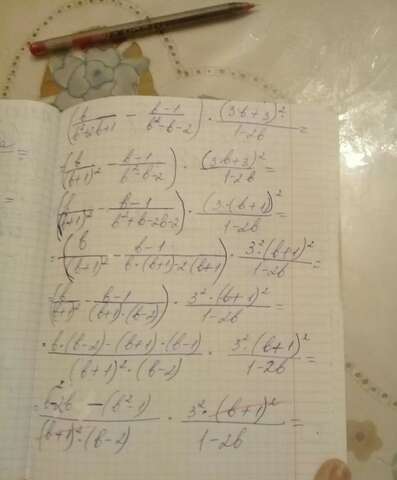 (b/(b²+2b+1) - (b-1)/(b²-b-2)) · (3b+3)²/(1-2b) =
= (b/(b+1)² - (b-1)/(b²-b-2)) · (3b+3)²/(1-2b) =
= (b/(b+1)² - (b-1)/(b²+b-2b-2)) · (3·(b+1))²/(1-2b) =
= (b/(b+1)² - (b-1)/(b·(b+1)-2(b+1))) · 3²·(b+1)²/(1-2b) =
= (b/(b+1)² - (b-1)/((b+1)·(b-2))) · 3²·(b+1)²/(1-2b) =
= (b·(b-2)-(b+1)·(b-1))/((b+1)²·(b-2)) · 3²·(b+1)²/(1-2b) =
= (b²-2b-(b²-1))/((b+1)²·(b-2)) · 3²·(b+1)²/(1-2b) =